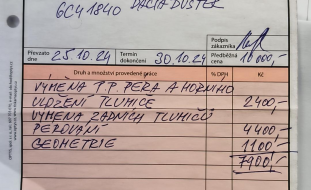 6C4 1840 DACIA DUSTER
Podpis zákazníka
Převzato dne 25.10.24 Termín dokončení 30.10.24 Předběžná cena 10 000,-
Druh a množství provedené práce % DPH Kč
VÝMĚNA P.P. PERA A HORNÍHO
ULOŽENÍ TLUMIČE 2400,-
VÝMĚNA ZADNÍCH TLUMIČŮ
PEROVÁNÍ 4400,-
GEOMETRIE 1100,-
7900,-